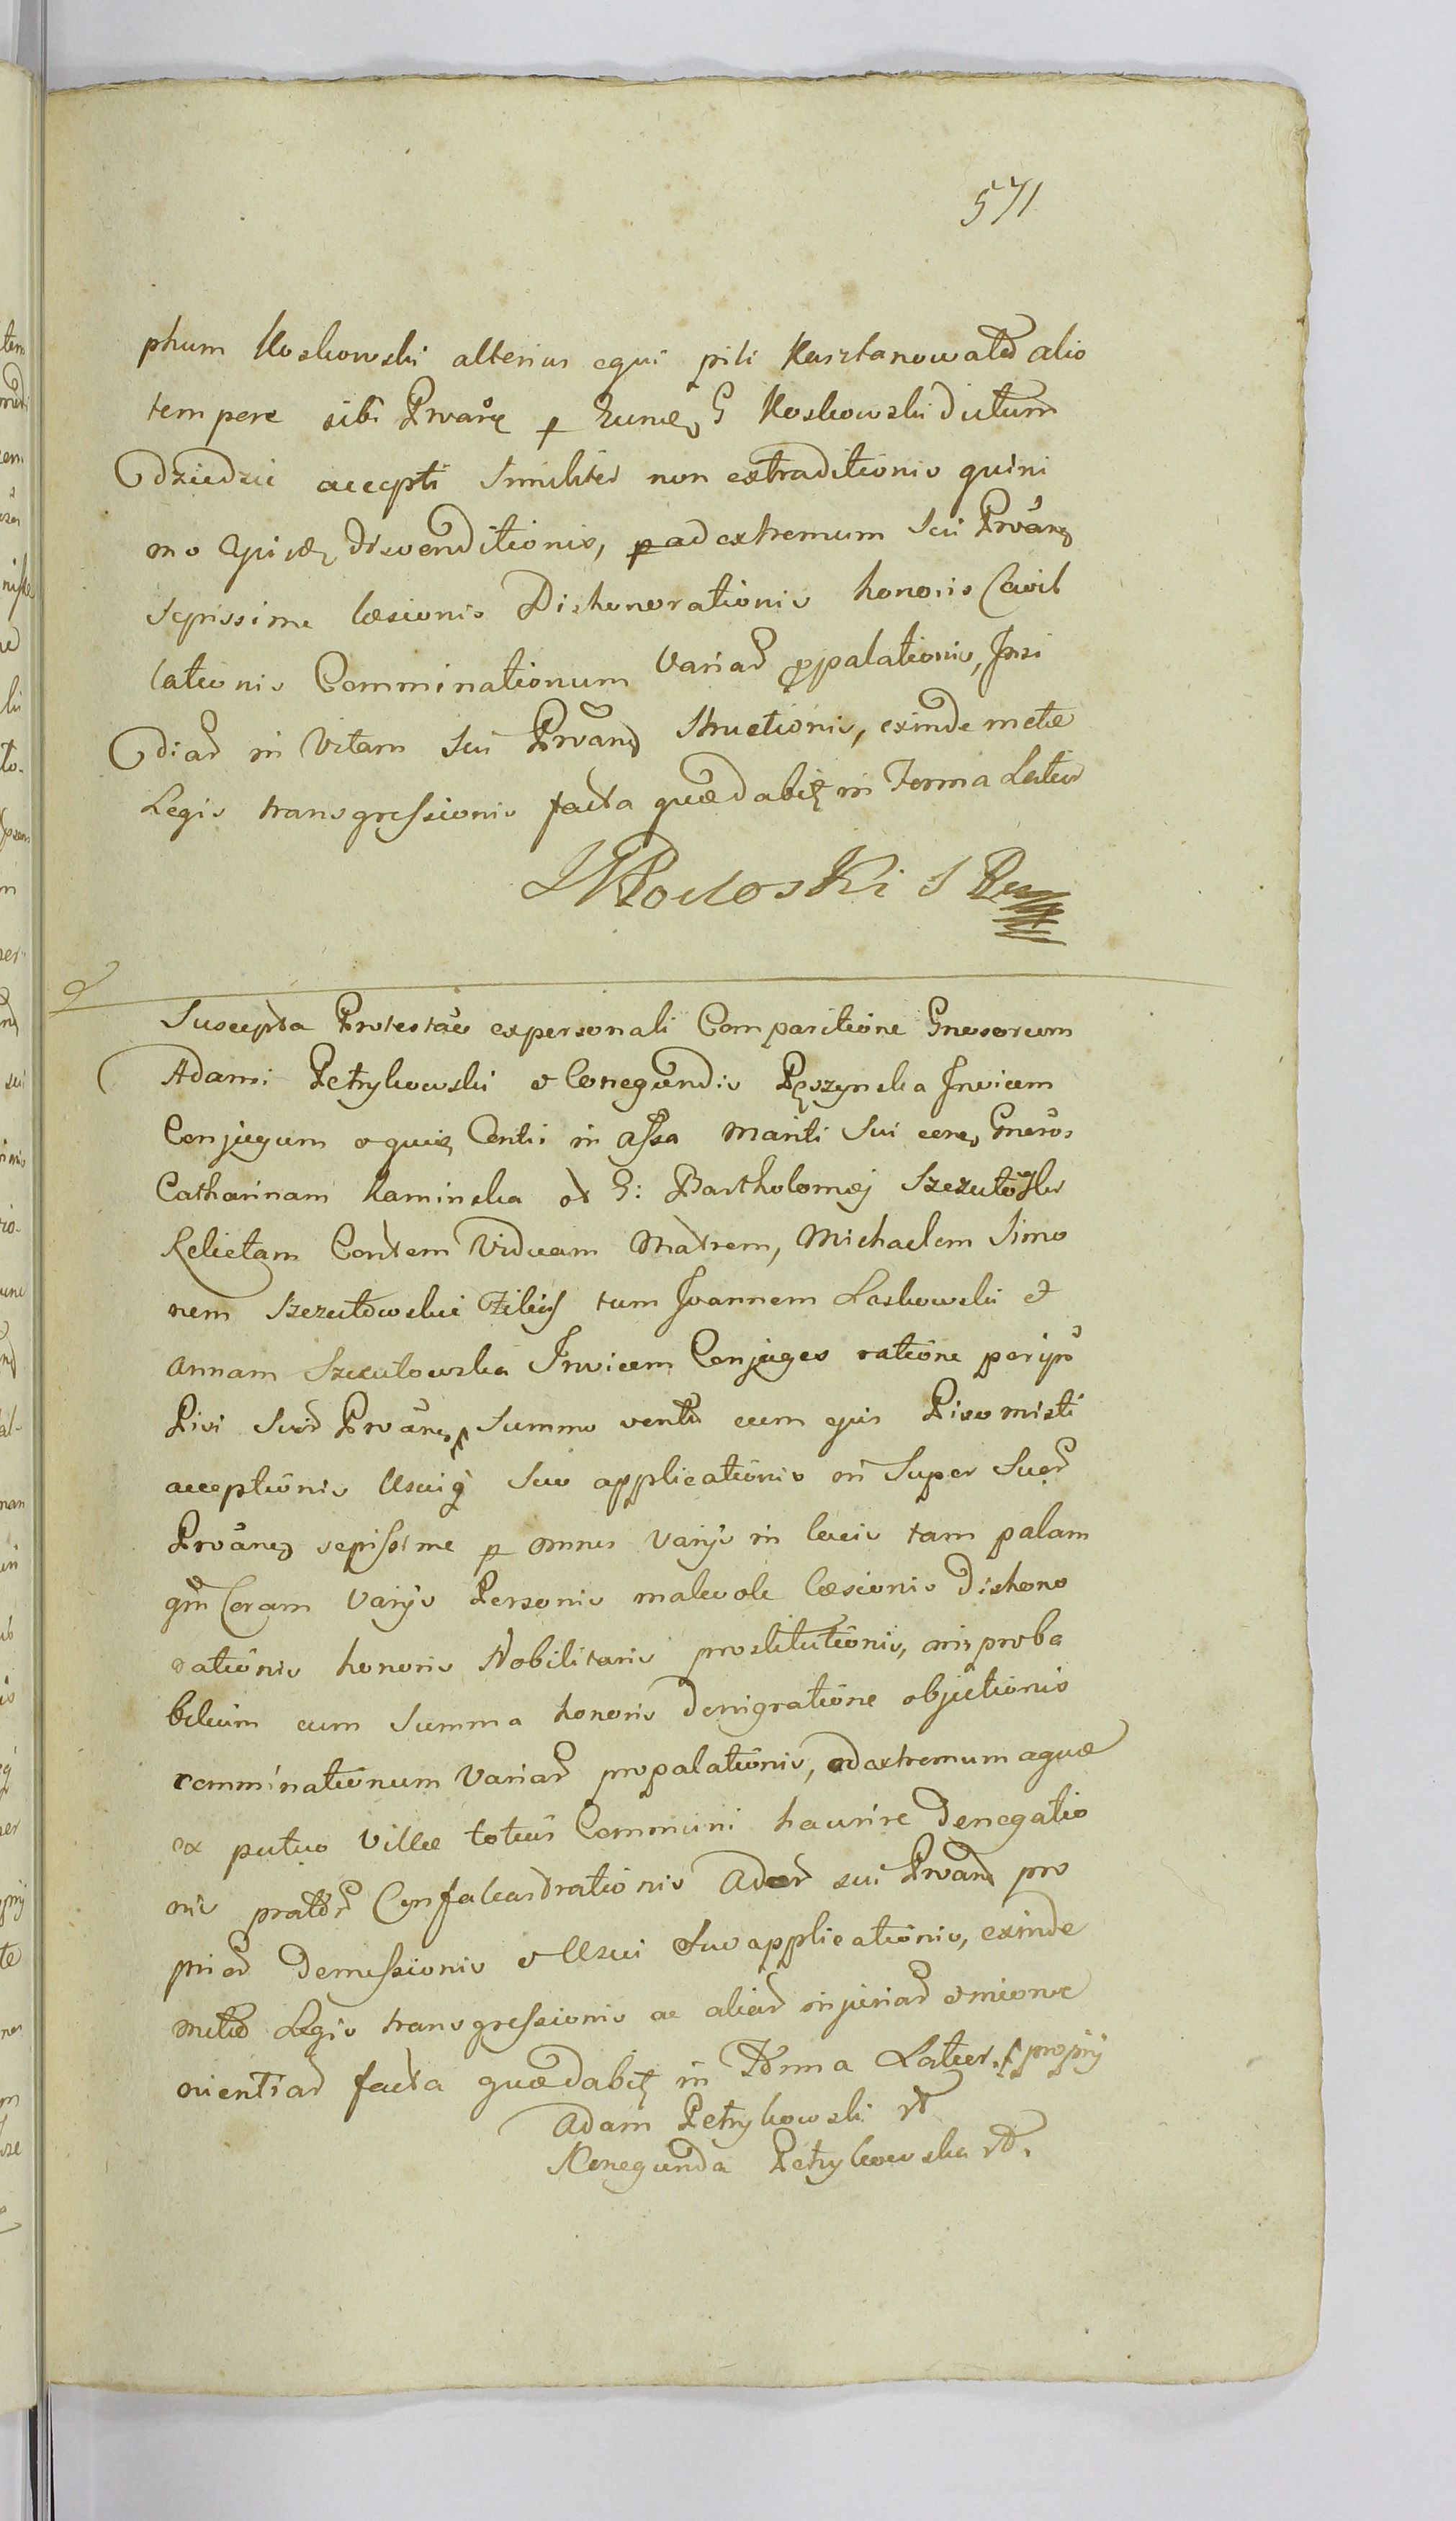 571
phum Koskowski alterius equi pili Kasztanowated alio
tempore sibi Prvanę p Eundę G Koskowski dictum
dziedzic accepti Similiter non extraditionis quini
mo disvenditionis, ad extremum Sui Prvanę
sepissime læsionis Dishonorationis honoris Cavil
lationis Comminationum Variar propalationis, Insi
diar in Vitam Sui Prvanę Structionis, exinde metæ
Legis transgressionis facta quædabit in Forma Latior
Podoski
Suscepta Protestao expersonali Comparitione Gnosorum
Adami Petrykowski et Conegundis Pęszynska Invicem
Conjugum in assa Mariti Sui Gneros
Catharinam Kaminska G: Bartholomæj
Relictam Contem Viduam Matrem, Michaelem Simo
nem Szczutowskie Filius tum Joannem Laskowski et
Annam Szczutowska Invicem Conjuges ratione
Pisi Suor Prvanę Summo cum ejus Piso misti
acceptionis Usuiq Suo applicationis in Super Suor
Prvanę sepissime p omnes Varys in locis tam palam
qm Coram Varys Personis malevole læsionis Dishono
rationis honoris Nobilitaris prostitutionis, proba
bilium cum Summa honoris denigratione objectionis
comminationum Variar propalationis, ad extremum aquæ
ex puteo Villæ totius Communi haurire Denegatio
nis prator Confalcastrationis sui Prvanę pro
priar Demessionis et Usui Suo applicationis, exinde
metæ Legis transgressionis ac aliar injuriar
nientiar facta quædabit in Forma Latior. propry
Adam Petrykowski
Konegunda Petrykowska